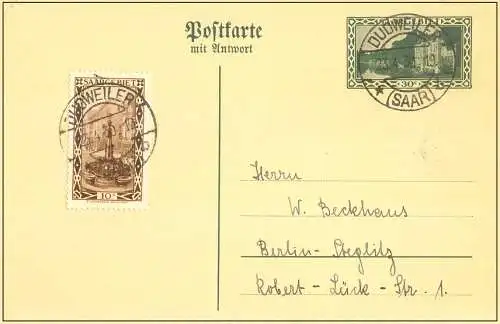 Postkarte
mit Antwort
SAARGEBIET
30c
DUDWEILER
(SAAR)
SAARGEBIET
10c
DUDWEILER
Herrn
W. Beckhaus
Berlin-Steglitz
Robert-Lück-Str. 1.